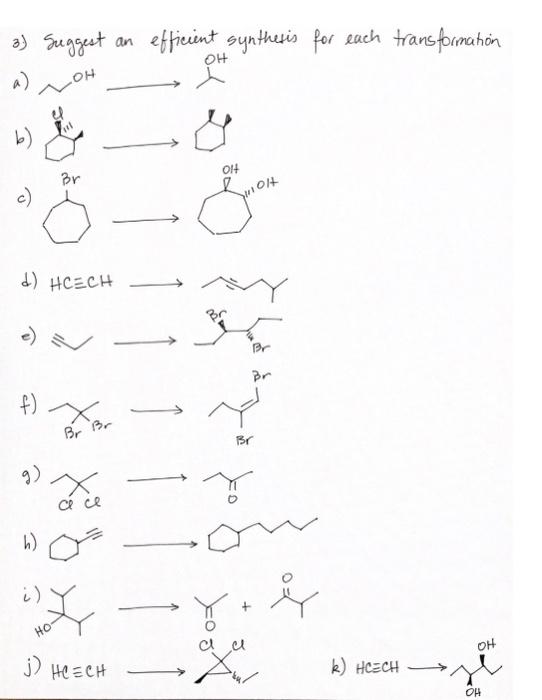 3) Suggest an efficient synthesis for each transformation
a) OH OH
b) Cl
c) Br OH OH
d) HC≡CH
e) Br Br
f) Br Br Br Br
g) Cl Cl O
h)
i) HO O + O
j) HC≡CH Cl Cl k) HC≡CH OH OH